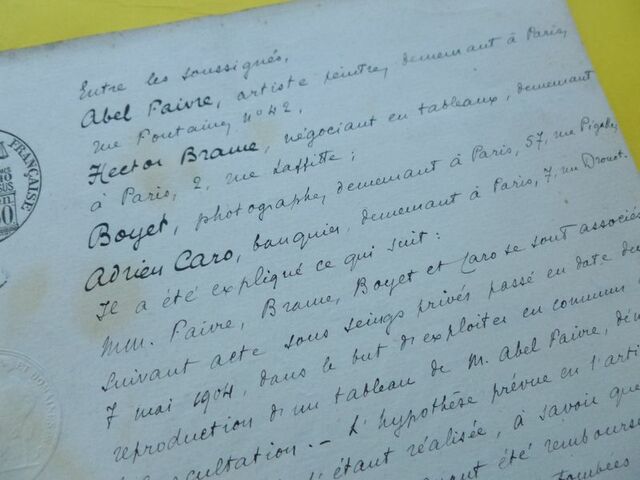 Entre les soussignés,
Abel Faivre, artiste peintre, demeurant à Paris,
rue Fontaine, n° 42,
Hector Brame, négociant en tableaux, demeurant
à Paris, 2, rue Laffitte ;
Boyet, photographe, demeurant à Paris, 57, rue Pigalle,
Adrien Caro, banquier, demeurant à Paris, 7, rue Drouot.
Il a été expliqué ce qui suit :
MM. Faivre, Brame, Boyet et Caro se sont associés
suivant acte sous seings privés passé en date du
7 mai 1904, dans le but d'exploiter en commun
reproduction d'un tableau de M. Abel Faivre,
L'hypothèse prévue en l'arti
l'étant réalisée, à savoir que
été rembourse
tombées
FRANÇAISE